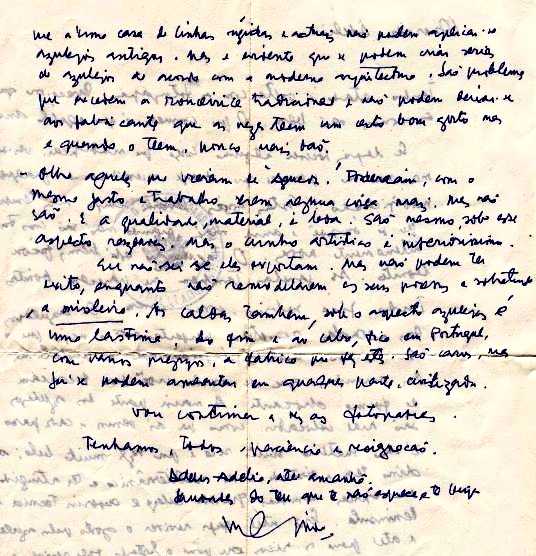 me a uma casa de linhas rígidas e actuais não podem aplicar-se
azulejos antigos. Mas é evidente que se podem criar series
de azulejos de acordo com a moderna arquitectura. São problemas
que excedem a tradicional e não podem deixar-se
aos fabricantes que às vezes teem um certo bom gosto mas
e quando o teem, nunca
- Olhe aqueles que vieram de Agueda! Poderiam, com o
mesmo gasto e trabalho, serem alguma coisa mais. Mas não
são. E a qualidade, material, é boa. São mesmo, sob esse
aspecto razoaveis. Mas o cunho artistico é
Eu não sei se eles exportam. Mas não podem ter
exito, enquanto não remodelarem os seus e sobretudo
a . As Caldas tambem, sob o aspecto azulejos é
uma lastima. Ao fim e ao cabo, fica em Portugal,
com varios , a fabrica . São caros, mas
já se podem apresentar em qualquer parte civilizada.
Vou continuar a as fotografias.
Tenhamos, todos paciencia e resignação.
Adeus Adelio, até amanhã.
Saudades do teu que te não esquece e te